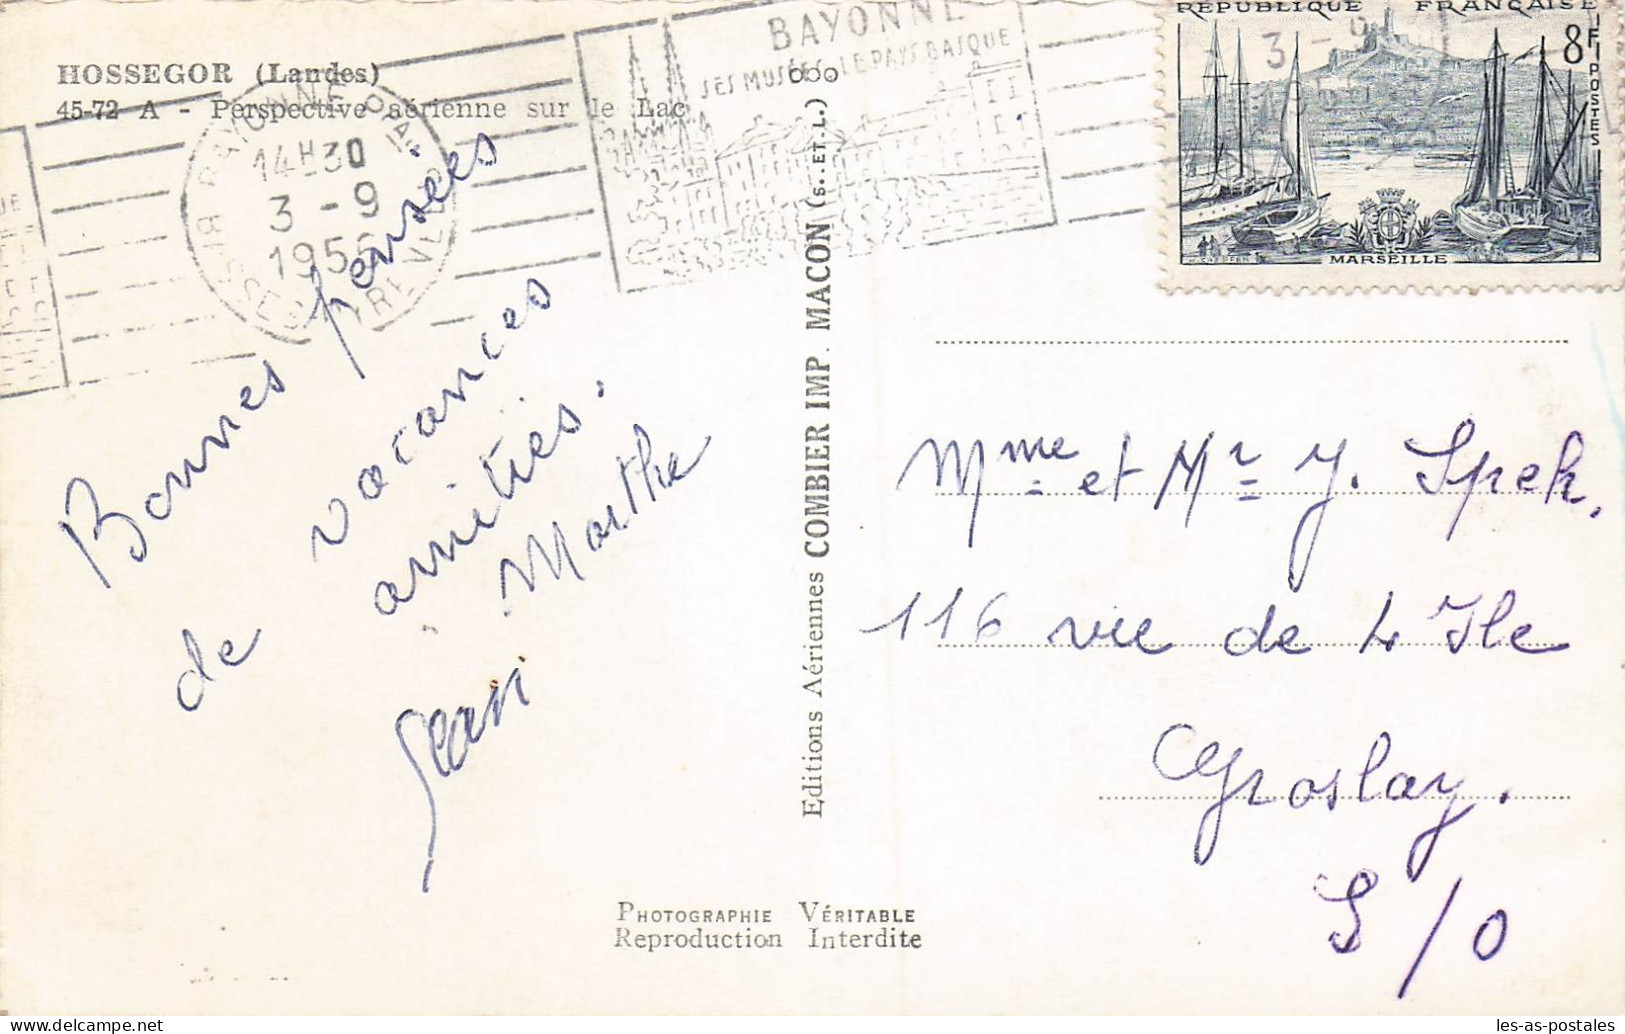 HOSSEGOR (Landes)
45-72 A - Perspective aérienne sur le Lac
14H30
3 - 9
BAYONNE
SES MUSÉES LE PAYS BASQUE
RÉPUBLIQUE FRANÇAISE
8F
POSTES
MARSEILLE
3 - 9
Bonnes pensées
de vacances
amitiés.
Marthe
Jean
Editions Aériennes COMBIER IMP. MACON (S. ET. L.)
Mme et Mr J. Spek,
116 rue de L'Ile
Groslay.
S/O
PHOTOGRAPHIE VÉRITABLE
Reproduction Interdite
les-as-postales